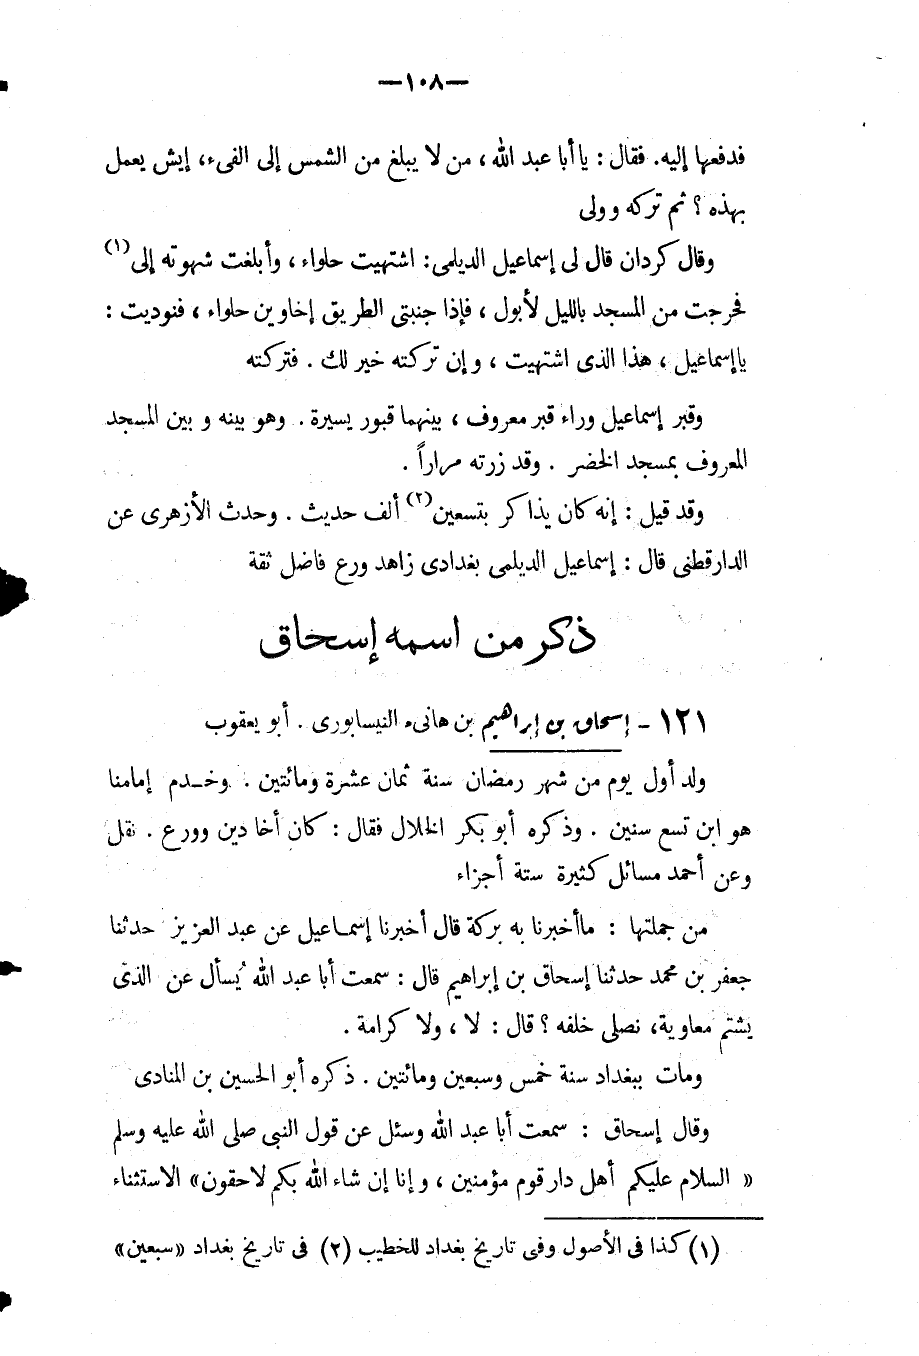 —١٠٨—
فدفعها إليه. فقال : يا أبا عبد الله ، من لا يبلغ من الشمس إلى الفىء، إيش يعمل
بهذه ؟ ثم تركه وولى
وقال كردان قال لى إسماعيل الديلمى: اشتهيت حلواء ، وأبلغت شهوته إلى(١)
فخرجت من المسجد بالليل لأبول ، فإذا جنبتى الطريق إخاوين حلواء ، فنوديت :
ياإسماعيل ، هذا الذى اشتهيت ، وإن تركته خير لك . فتركته
وقبر إسماعيل وراء قبر معروف ، بينهما قبور يسيرة . وهو بينه و بين المسجد
المعروف بمسجد الخضر . وقد زرته مراراً .
وقد قيل : إنه كان يذاكر بتسعين(٢) ألف حديث . وحدث الأزهرى عن
الدارقطنى قال : إسماعيل الديلمى بغدادى زاهد ورع فاضل ثقة
ذكر من اسمه إسحاق
١٢١ - إسحاق بن إبراهيم بن هانىء النيسابورى . أبو يعقوب
ولد أول يوم من شهر رمضان سنة ثمان عشرة ومائتين . وخـدم إمامنا
هو ابن تسع سنين . وذكره أبو بكر الخلال فقال : كان أخا دين وورع . نقل
وعن أحمد مسائل كثيرة ستة أجزاء
من جملتها : ماأخبرنا به بركة قال أخبرنا إسمـاعيل عن عبد العزيز حدثنا
جعفر بن محمد حدثنا إسحاق بن إبراهيم قال : سمعت أبا عبد الله يُسأل عن الذى
يشتم معاوية، نصلى خلفه ؟ قال : لا ، ولا كرامة .
ومات ببغداد سنة خمس وسبعين ومائتين . ذكره أبو الحسين بن المنادى
وقال إسحاق : سمعت أبا عبد الله وسئل عن قول النبى صلى الله عليه وسلم
« السلام عليكم أهل دار قوم مؤمنين ، وإنا إن شاء الله بكم لاحقون» الاستثناء
(١) كذا فى الأصول وفى تاريخ بغداد للخطيب (٢) فى تاريخ بغداد «سبعين»